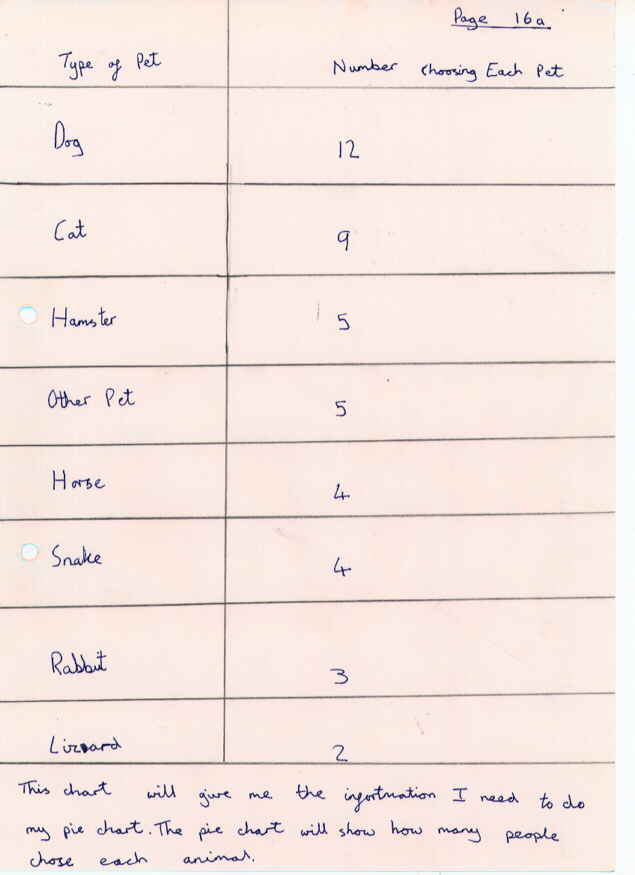 Page 16a
Type of Pet Number Choosing Each Pet
Dog 12
Cat 9
Hamster 5
Other Pet 5
Horse 4
Snake 4
Rabbit 3
Lizard 2
This chart will give me the information I need to do
my pie chart. The pie chart will show how many people
chose each animal.